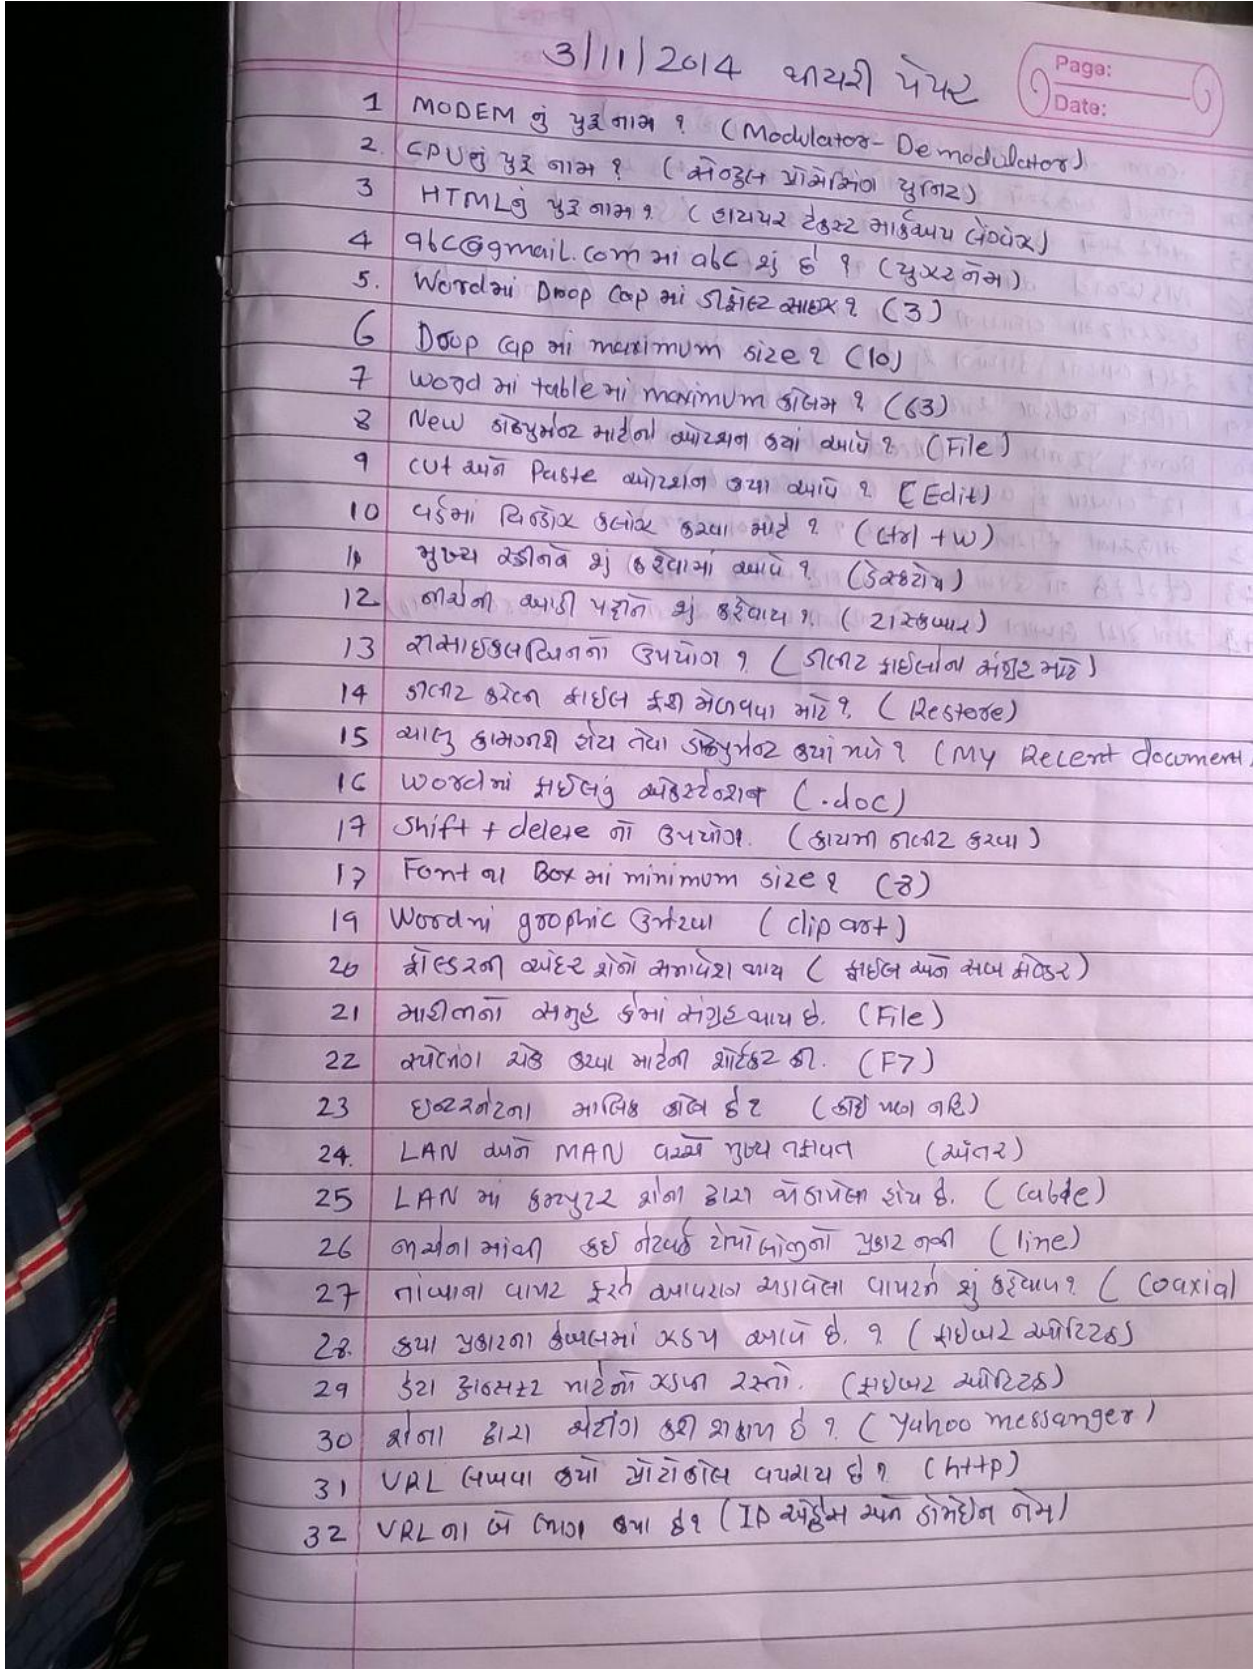 3/11/2014 થીયરી પેપર
Page:
Date:
1 MODEM નું પુરૂ નામ ? (Modulator-Demodulator)
2. CPU નું પુરૂ નામ ? (સેન્ટ્રલ પ્રોસેસિંગ યુનિટ)
3 HTML નું પુરૂ નામ ? (હાયપર ટેક્સ્ટ માર્કઅપ લેંગ્વેજ)
4 abc@gmail.com માં abc શું છે ? (યુઝરનેમ)
5. Word માં Drop Cap માં ડીફોલ્ટ સાઇઝ ? (3)
6 Drop cap માં maximum size ? (10)
7 Word માં table માં maximum કોલમ ? (63)
8 New ડોક્યુમેન્ટ માટેનો ઓપ્શન કયાં આવે ? (File)
9 cut અને Paste ઓપ્શન કયા આવે ? (Edit)
10 વર્ડમાં વિન્ડોઝ કલોઝ કરવા માટે ? (ctrl + w)
11 મુખ્ય સ્ક્રીનને શું કહેવામાં આવે ? (ડેસ્કટોપ)
12 નીચેની આડી પટ્ટીને શું કહેવાય ? (ટાસ્કબાર)
13 રીસાઇકલબિનનો ઉપયોગ ? (ડીલીટ ફાઇલોના સંગ્રહ માટે)
14 ડીલીટ કરેલ ફાઇલ ફરી મેળવવા માટે ? (Restore)
15 ચાલુ કામગીરી હોય તેવા ડોક્યુમેન્ટ કયાં મળે ? (My Recent document)
16 Word માં ફાઈલનું એક્સ્ટેન્શન (.doc)
17 Shift + delete નો ઉપયોગ. (કાયમી ડીલીટ કરવા)
17 Font ના Box માં minimum size ? (8)
19 Word માં graphic ઉમેરવા (clip art)
20 ફોલ્ડરની અંદર શેનો સમાવેશ થાય (ફાઇલ અને સબ ફોલ્ડર)
21 માહિતીનો સમુહ કેમાં સંગ્રહ થાય છે. (File)
22 સ્પેલીંગ ચેક કરવા માટેની શોર્ટકટ કી. (F7)
23 ઇન્ટરનેટના માલિક કોણ છે ? (કોઇ પણ નહિ)
24. LAN અને MAN વચ્ચે મુખ્ય તફાવત (અંતર)
25 LAN માં કમ્પ્યુટર શેના દ્વારા જોડાયેલા હોય છે. (Cable)
26 નીચેના માંથી કઇ નેટવર્ક ટોપોલોજીનો પ્રકાર નથી (line)
27 તાંબાના વાયર ફરતે આવરણ ચડાવેલા વાયરને શું કહેવાય ? (Coaxial
28. કયા પ્રકારના કેબલમાં ઝડપ આવે છે. ? (ફાઇબર ઓપ્ટિક)
29 ડેટા ટ્રાન્સફર માટેનો ઝડપી રસ્તો. (ફાઇબર ઓપ્ટિક)
30 શેના દ્વારા ચેટીંગ કરી શકાય છે ? (Yahoo messanger)
31 URL લખવા કયો પ્રોટોકોલ વપરાય છે ? (http)
32 URL ના બે ભાગ કયા છે ? (IP એડ્રેસ અને ડોમેઇન નેમ)